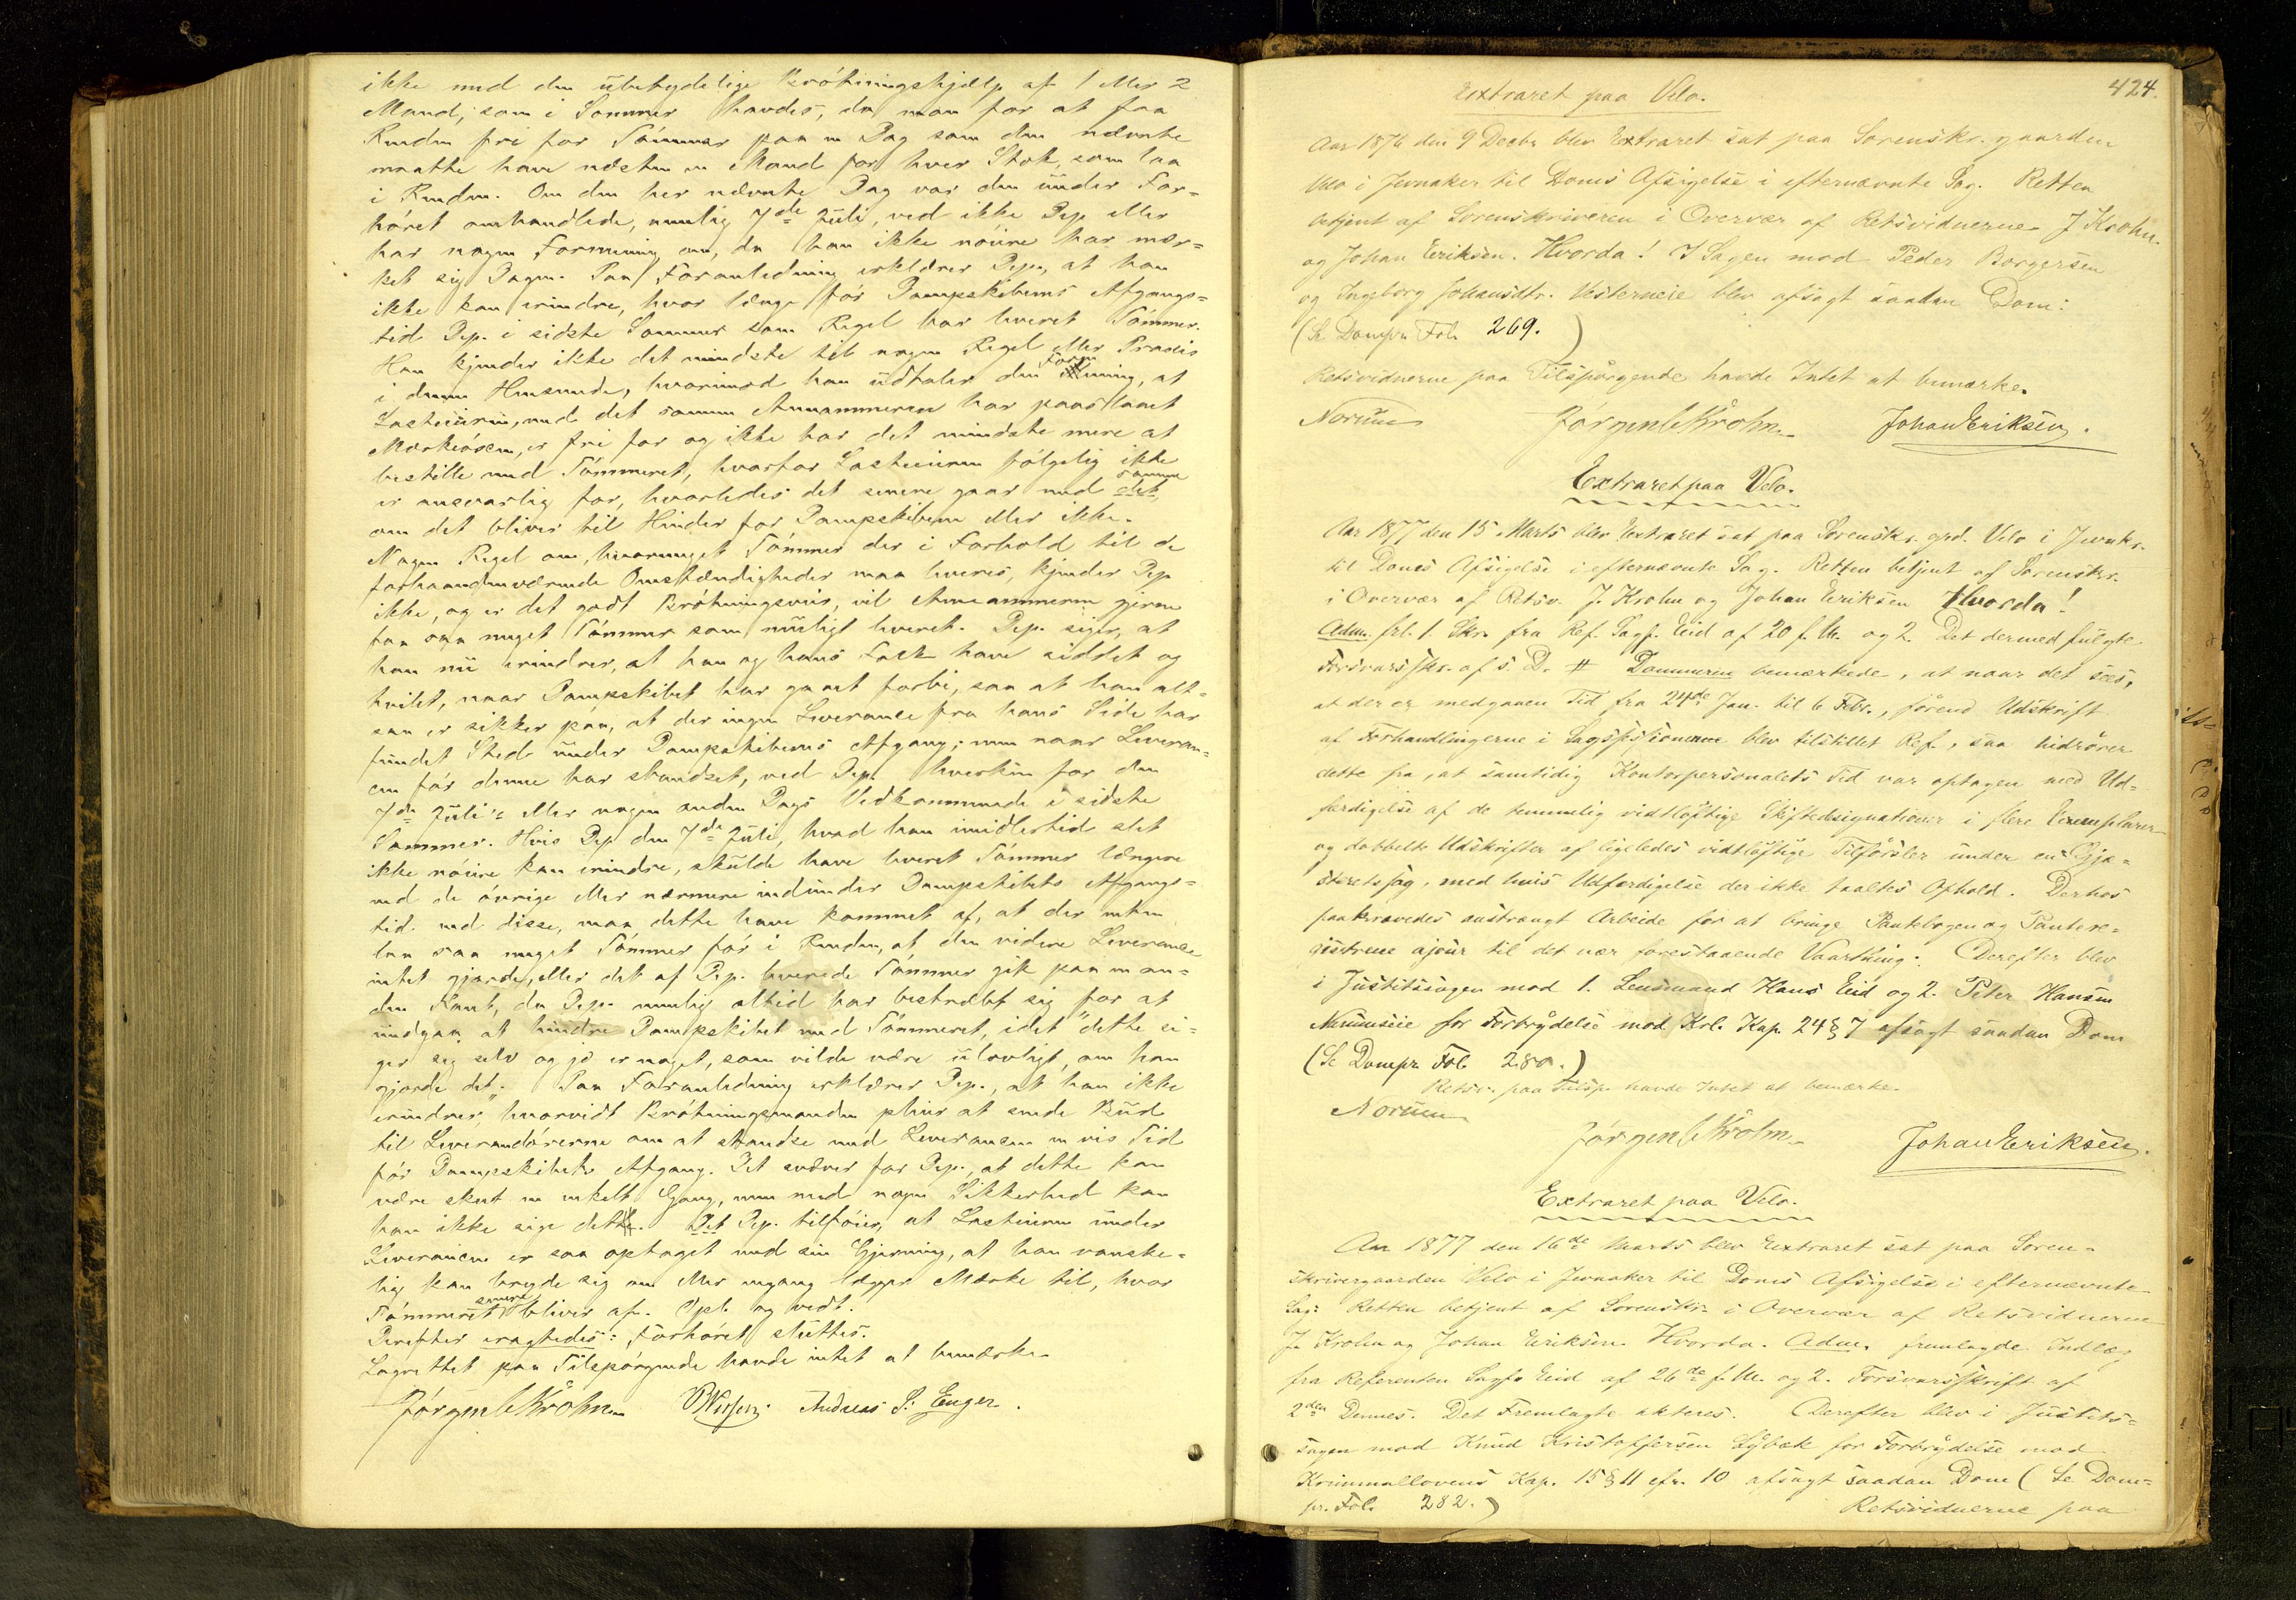 ikke med den ubetydelige Brötningshjælp af 1 eller 2
Mand, som i Sommer havdes, da man for at faa
Renden fri for Tömmer paa en Dag som den nævnte
maatte have næsten en Mand for hver Stok, som laa
i Renden. Om den her nævnte Dag var den under For-
höret omhandlede, nemlig 7de Juli, ved ikke Dep. eller
har nogen Formening om, da han ikke nöiere har mær-
ket sig Dagen. Paa Foranledning erklærer Dep., at han
ikke kan erindre, hvor længe för Dampskibenes Afgangs-
tid Dep. i sidste Sommer som Regel har leveret Tömmer.
Han kjender ikke det mindste til nogen Regel eller Praxis
i denne Henseende, hvorimod han udtaler den Formening, at
Lasteieren, med det samme Annammeren har paaslaaet
Mærkeöxen, er fri for og ikke har det mindste mere at
bestille med Tömmeret, hvorfor Lasteieren fölgelig ikke
er ansvarlig for, hvorledes det senere gaar med samme
om det bliver til Hinder for Dampskibene eller ikke.
Nogen Regel om, hvormeget Tömmer der i Forhold til de
forhaandenværende Omstændigheder maa leveres, kjender Dep.
ikke, og er det godt Brötningsveir, vil Annammeren gjerne
faa saa meget Tömmer som muligt leveret. Dep. siger, at
han nu erindrer, at han og hans Folk have siddet og
hvilet, naar Dampskibet har gaaet forbi, saa at han alt-
saa er sikker paa, at der ingen Leverance fra hans Side har
fundet Sted under Dampskibenes Afgang; men naar Leveran-
cen för denne har standset, ved Dep. hverken for den
7de Juli's eller nogen anden Dags Vedkommende i sidste
Sommer. Hvis Dep. den 7de Juli, hvad han imidlertid slet
ikke nöiere kan erindre, skulde have leveret Tömmer længere
end de övrige eller nærmere indunder Dampskibets Afgangs-
tid end disse, maa dette have kommet af, at der enten
laa saa meget Tömmer för i Renden, at den videre Leverance
intet gjorde, eller det af Dep. leverede Tömmer gik paa en an-
den Kant, da Dep. nemlig altid har bestræbt sig for at
undgaa at hindre Dampskibet med Tömmeret, idet "dette si-
ger sig selv og jo er noget, som vilde være ulovligt, om han
gjorde det". Paa Foranledning erklærer Dep., at han ikke
erindrer, hvorvidt Brötningsmanden pleier at sende Bud
til Leverandörerne om at standse med Leverancen en vis Tid
för Dampskibets Afgang. Det svæver for Dep., at dette kan
være skeet en enkelt Gang, men med nogen Sikkerhed kan
han ikke sige det. Dep. tilföier, at Lasteieren under
Leverancen er saa optaget med sin Gjerning, at han vanske-
lig kan bryde sig om eller engang lægger Mærke til, hvor
Tömmeret senere bliver af. Opl. og vedt.
Derefter eragtedes: Forhöret sluttes.
Lagrettet paa Tilspörgende havde intet at bemærke.
Jörgen Krohn Andreas P. Enger.
424.
Extraret paa Velo.
Aar 1876 den 9 Decbr. blev Extraret sat paa Sorenskr.gaarden
Velo i Jevnaker til Doms Afsigelse i efternævnte Sag. Retten
betjent af Sorenskriveren i Overvær af Retsvidnerne J Krohn.
og Johan Eriksen. Hvorda! I Sagen mod Peder Borgersen
og Ingeborg Johansdtr. Vesterneie blev afsagt saadan Dom:
(Se Dompr. Fol. 269.)
Retsvidnerne paa Tilspörgende havde Intet at bemærke.
Norum Jörgen Krohn. Johan Eriksen.
Extraret paa Velo.
Aar 1877 den 15 Marts blev Extraret sat paa Sorenskr.grd. Velo i Jevnkr.
til Doms Afsigelse i efternævnte Sag. Retten betjent af Sorenskr.
i Overvær af Retsv. J. Krohn og Johan Eriksen Hvorda!
Adm. frl. 1. Skr. fra Ref. Sagf. Eid af 20 f. M. og 2. Det dermed fulgte
Forsvarsskr. af s. D. # Dommeren bemærkede, at naar det sees,
at der er medgaaen Tid fra 24de Jan. til 6 Febr., förend Udskrift
af Forhandlingerne i Sagsessionerne blev tilstillet Ref., saa hidrörer
dette fra, at samtidig Kontorpersonalets Tid var optagen med Ud-
færdigelse af de temmelig vidtlöftige Skiftedesignationer i flere Exemplarer
og dobbelte Udskrifter af ligeledes vidtlöftige Tilförsler under en Gjæ-
steretssag, med hvis Udfærdigelse der ikke taaltes Ophold. Derhos
paakrævedes anstrængt Arbeide for at bringe Pantebogen og Pantere-
gistrene ajour til det nær forestaaende Vaarthing. Derefter blev
i Justitssagen mod 1. Lensmand Hans Eid og 2. Peter Hansen
for Forbrydelse mod Krl. Kap. 24 § 7 afsagt saadan Dom
(Se Dompr. Fol. 280.)
Retsv. paa Tilsp. havde Intet at bemærke.
Norum
Jörgen Krohn. Johan Eriksen.
Extraret paa Velo.
Aar 1877 den 16de Marts blev Extraret sat paa Soren-
skrivergaarden Velo i Jevnaker til Doms Afsigelse i efternævnte
Sag. Retten betjent af Sorenskr. i Overvær af Retsvidnerne
J. Krohn og Johan Eriksen. Hvorda. Adm. fremlagde Indlæg
fra Referenten Sagf. Eid af 26de f. M. og 2. Forsvarsskrift af
2den Dennes. Det Fremlagte akteres. Derefter blev i Justits-
sagen mod Knud Kristoffersen Lybæk for Forbrydelse mod
Kriminallovens Kap. 15 § 11 cfr. 10 afsagt saadan Dom (Se Dom-
pr. Fol. 282.) Retsvidnerne paa